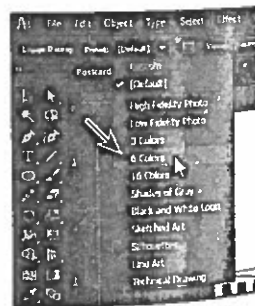 Ai File Edit Object Type Select Effect
Image Tracing Preset: [Default]
Postcard
[Default]
High Fidelity Photo
Low Fidelity Photo
3 Colors
6 Colors
16 Colors
Shades of Gray
Black and White Logo
Sketched Art
Silhouettes
Line Art
Technical Drawing